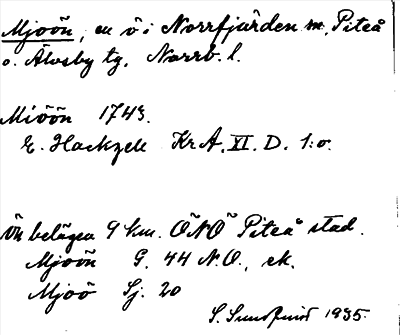 Mjoön, en ö i Norrfjärden m. Piteå
o. Älvsby tg, Norrb. l.
Miöön 1743.
E. Hackzell KrA. XI. D. 1:o.
Ön belägen 9 km. ÖNÖ Piteå stad.
Mjoön G. 44 N.O., ek.
Mjoö Sj. 20
S. Sundquist 1935.